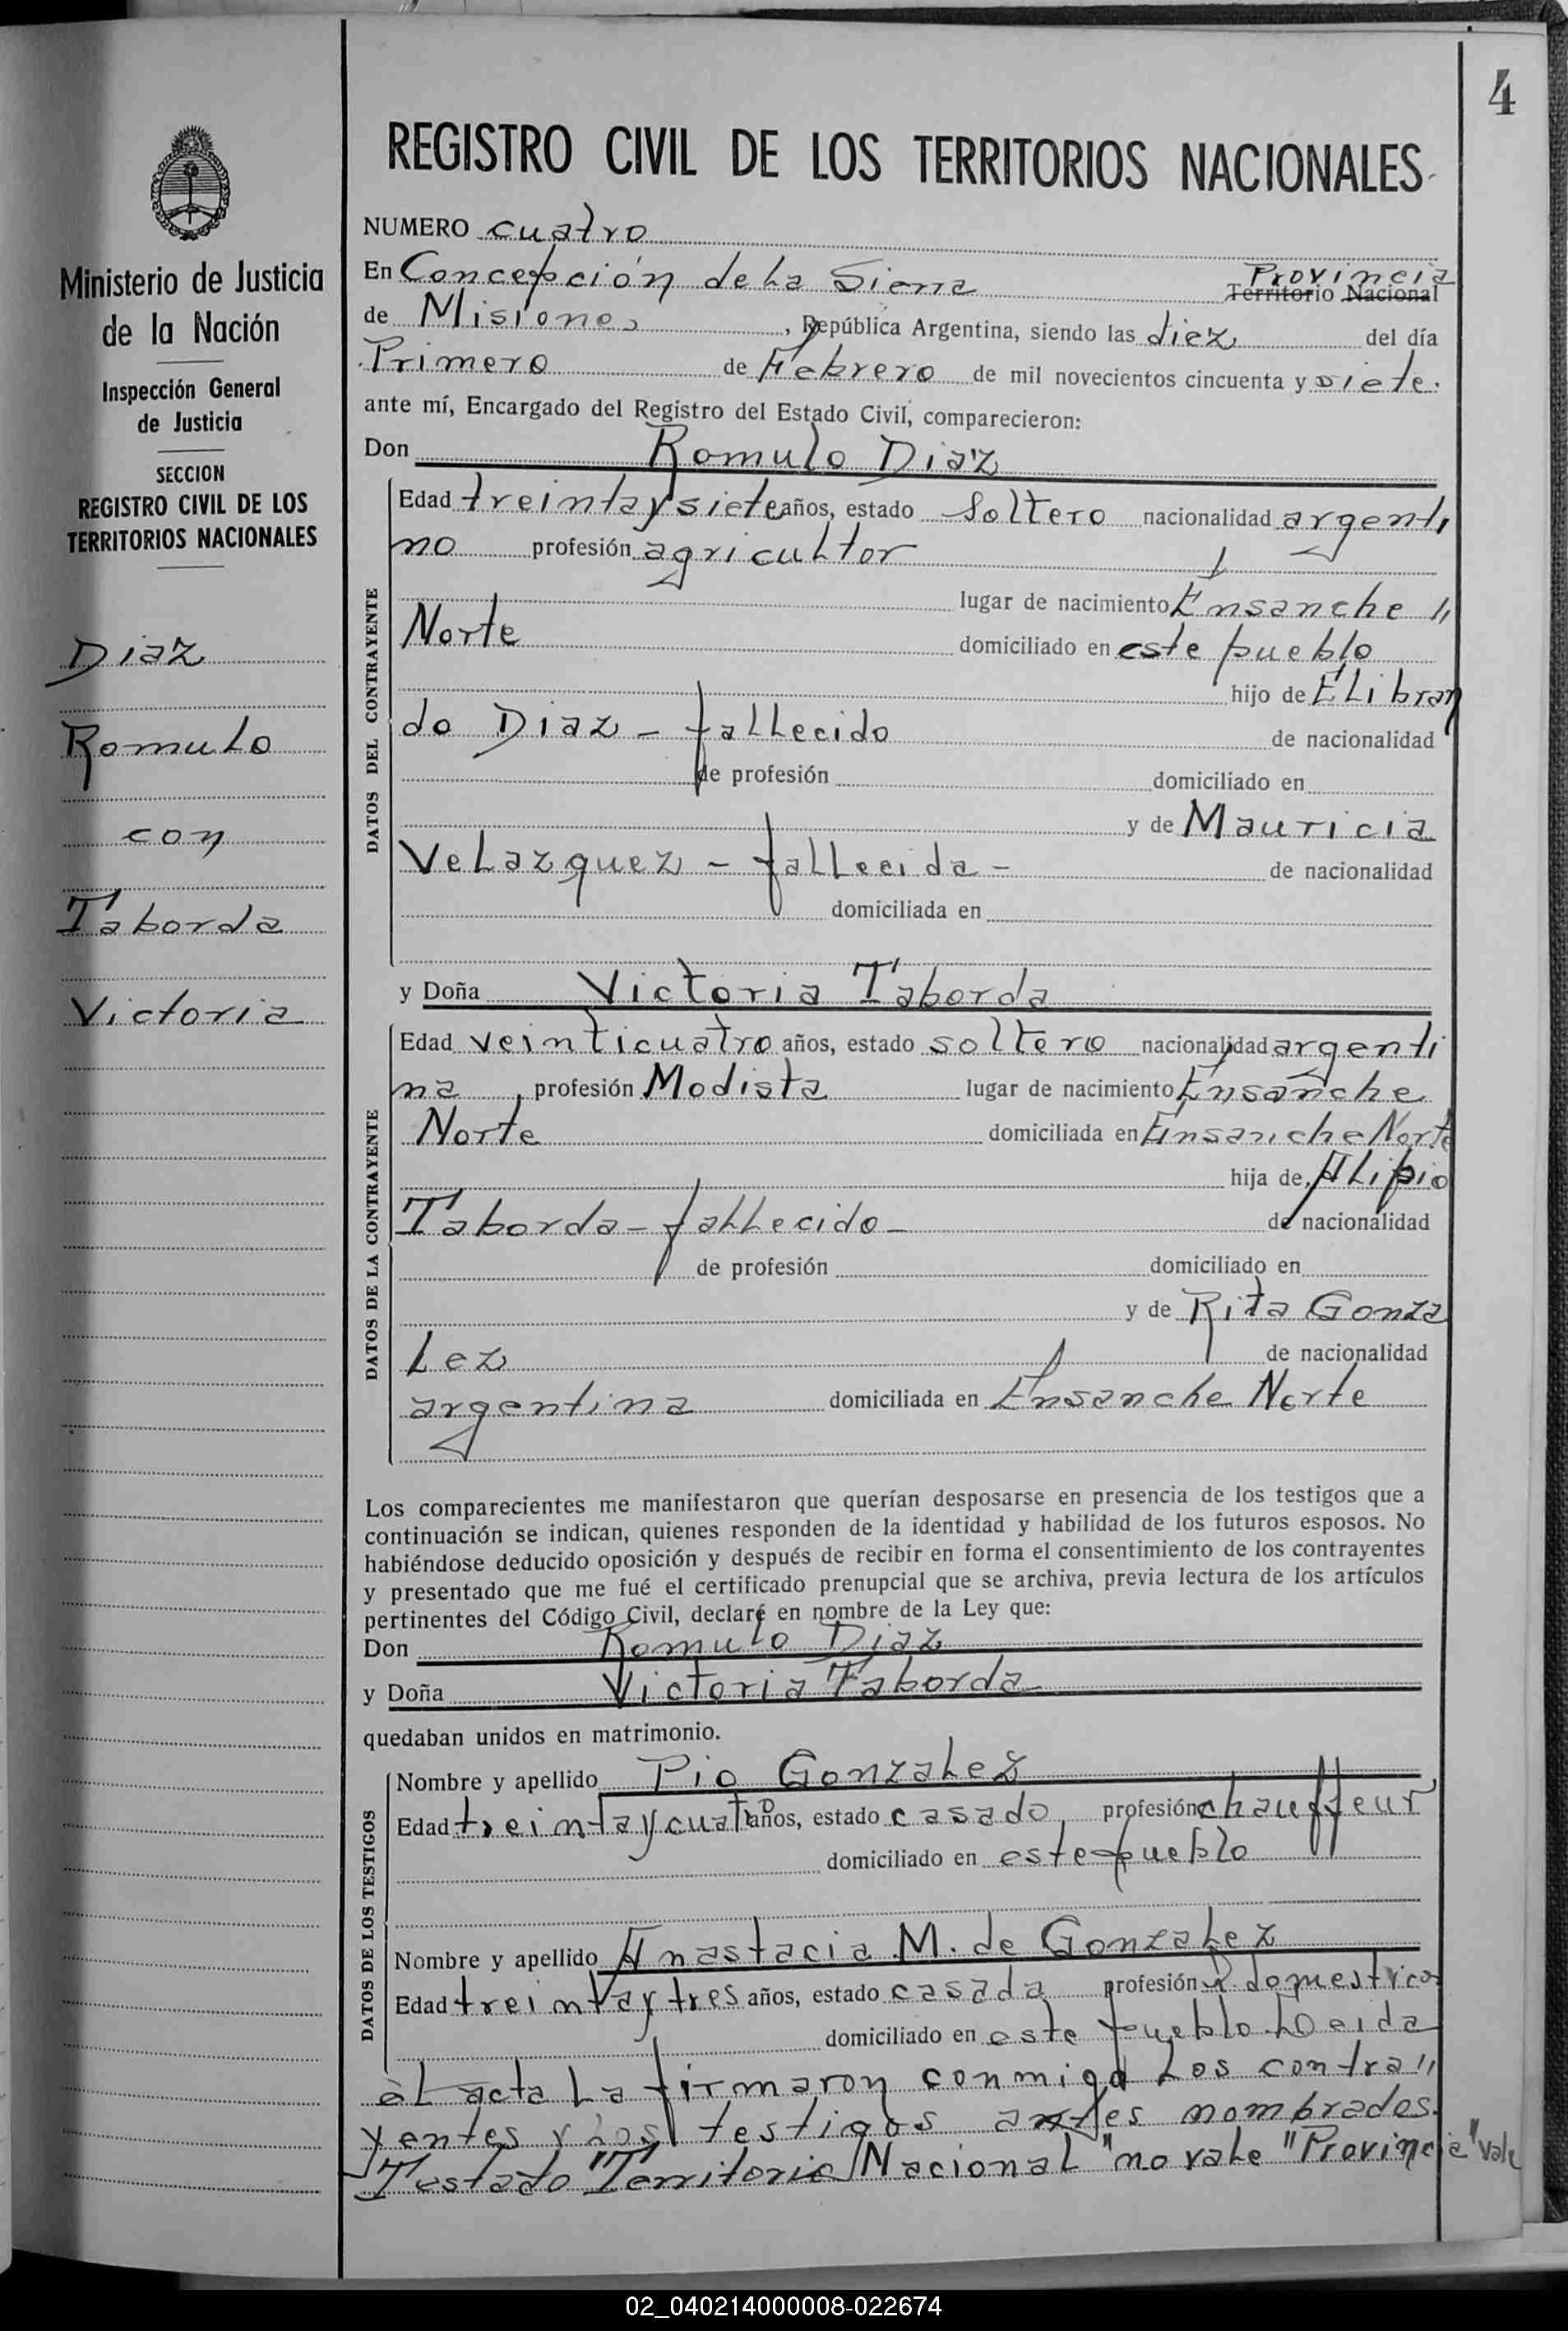 4
Ministerio de Justicia
de la Nación
Inspección General
de Justicia
SECCION
REGISTRO CIVIL DE LOS
TERRITORIOS NACIONALES
Diaz
Romulo
con
Taborda
Victoria
REGISTRO CIVIL DE LOS TERRITORIOS NACIONALES
NUMERO cuatro
En Concepción de La Sierra Provincia Territorio Nacional
de Misiones, República Argentina, siendo las diez del día
Primero de Febrero de mil novecientos cincuenta y siete.
ante mí, Encargado del Registro del Estado Civil, comparecieron:
Don Romulo Diaz
DATOS DEL CONTRAYENTE
Edad treinta y siete años, estado Soltero nacionalidad argenti
no profesión agricultor
lugar de nacimiento Ensanche "
Norte domiciliado en este pueblo
hijo de Elibran
do Diaz - fallecido de nacionalidad
de profesión domiciliado en
y de Mauricia
Velazquez - fallecida - de nacionalidad
domiciliada en
y Doña Victoria Taborda
DATOS DE LA CONTRAYENTE
Edad veinticuatro años, estado soltero nacionalidad argenti
na, profesión Modista lugar de nacimiento Ensanche
Norte domiciliada en Ensanche Norte
hija de Alipio
Taborda - fallecido - de nacionalidad
de profesión domiciliado en
y de Rita Gonza
lez de nacionalidad
argentina domiciliada en Ensanche Norte
Los comparecientes me manifestaron que querían desposarse en presencia de los testigos que a
continuación se indican, quienes responden de la identidad y habilidad de los futuros esposos. No
habiéndose deducido oposición y después de recibir en forma el consentimiento de los contrayentes
y presentado que me fué el certificado prenupcial que se archiva, previa lectura de los artículos
pertinentes del Código Civil, declaré en nombre de la Ley que:
Don Romulo Diaz
y Doña Victoria Taborda
quedaban unidos en matrimonio.
DATOS DE LOS TESTIGOS
Nombre y apellido Pio Gonzalez
Edad treinta y cuatro años, estado casado, profesión chauffeur
domiciliado en este pueblo
Nombre y apellido Anastacia M. de Gonzalez
Edad treinta y tres años, estado casada profesión Q. domesticos
domiciliado en este pueblo Leida
el acta La firmaron conmigo Los contra"
yentes y los testigos antes nombrados.
Testado "Territorio Nacional" no vale "Provincia" vale
02_040214000008-022674